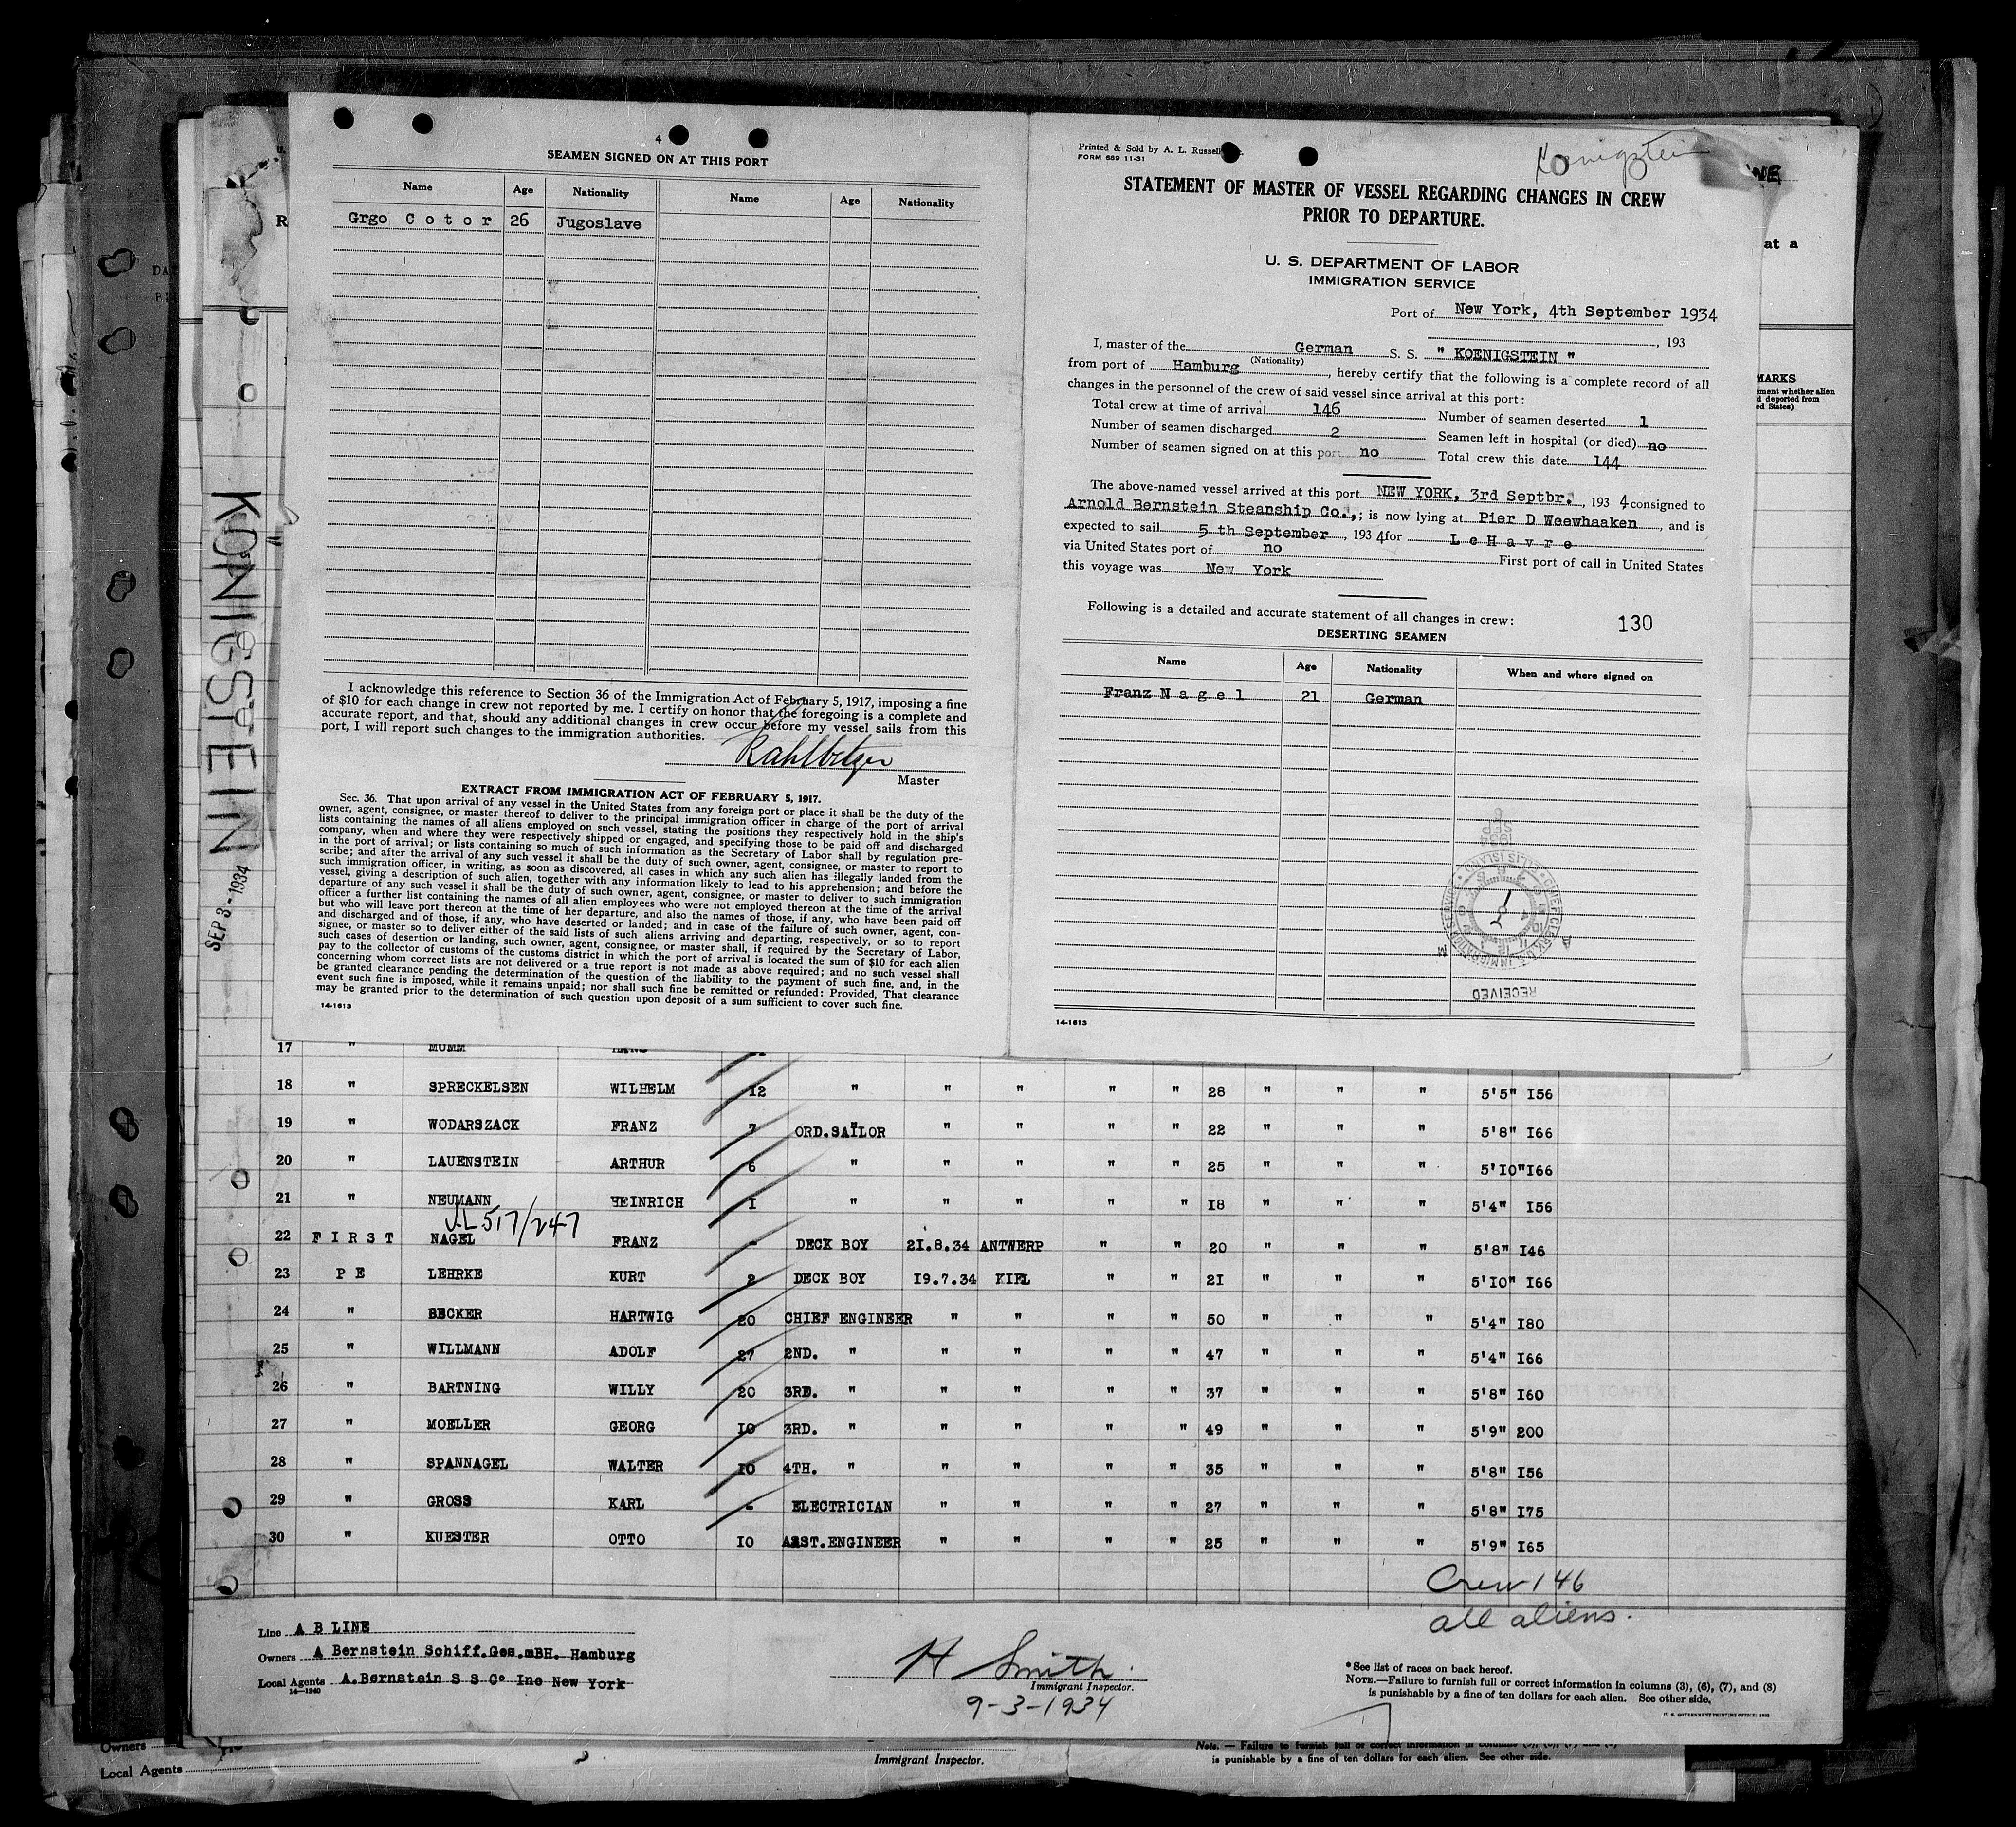 4
SEAMEN SIGNED ON AT THIS PORT
Name Age Nationality Name Age Nationality
Grgo C o t o r 26 Jugoslave
I acknowledge this reference to Section 36 of the Immigration Act of February 5, 1917, imposing a fine
of $10 for each change in crew not reported by me. I certify on honor that the foregoing is a complete and
accurate report, and that, should any additional changes in crew occur before my vessel sails from this
port, I will report such changes to the immigration authorities.
Master
EXTRACT FROM IMMIGRATION ACT OF FEBRUARY 5, 1917.
Sec. 36. That upon arrival of any vessel in the United States from any foreign port or place it shall be the duty of the
owner, agent, consignee, or master thereof to deliver to the principal immigration officer in charge of the port of arrival
lists containing the names of all aliens employed on such vessel, stating the positions they respectively hold in the ship's
company, when and where they were respectively shipped or engaged, and specifying those to be paid off and discharged
in the port of arrival; or lists containing so much of such information as the Secretary of Labor shall by regulation pre-
scribe; and after the arrival of any such vessel it shall be the duty of such owner, agent, consignee, or master to report to
such immigration officer, in writing, as soon as discovered, all cases in which any such alien has illegally landed from the
vessel, giving a description of such alien, together with any information likely to lead to his apprehension; and before the
departure of any such vessel it shall be the duty of such owner, agent, consignee, or master to deliver to such immigration
officer a further list containing the names of all alien employees who were not employed thereon at the time of the arrival
but who will leave port thereon at the time of her departure, and also the names of those, if any, who have been paid off
and discharged and of those, if any, who have deserted or landed; and in case of the failure of such owner, agent, con-
signee, or master so to deliver either of the said lists of such aliens arriving and departing, respectively, or so to report
such cases of desertion or landing, such owner, agent, consignee, or master shall, if required by the Secretary of Labor,
pay to the collector of customs of the customs district in which the port of arrival is located the sum of $10 for each alien
concerning whom correct lists are not delivered or a true report is not made as above required; and no such vessel shall
be granted clearance pending the determination of the question of the liability to the payment of such fine, and, in the
event such fine is imposed, while it remains unpaid; nor shall such fine be remitted or refunded: Provided, That clearance
may be granted prior to the determination of such question upon deposit of a sum sufficient to cover such fine.
14-1613
Printed & Sold by A. L. Russell
FORM 689 11-31
Koenigstein
STATEMENT OF MASTER OF VESSEL REGARDING CHANGES IN CREW
PRIOR TO DEPARTURE.
U. S. DEPARTMENT OF LABOR
IMMIGRATION SERVICE
Port of New York, 4th September 1934
, 193
I, master of the German S. S. " KOENIGSTEIN "
(Nationality)
from port of Hamburg , hereby certify that the following is a complete record of all
changes in the personnel of the crew of said vessel since arrival at this port:
Total crew at time of arrival 146 Number of seamen deserted 1
Number of seamen discharged 2 Seamen left in hospital (or died) no
Number of seamen signed on at this port no Total crew this date 144
The above-named vessel arrived at this port NEW YORK, 3rd Septbr. , 193 4 consigned to
Arnold Bernstein Steanship Co., ; is now lying at Pier D Weewhaaken , and is
expected to sail 5 th September , 193 4 for L e H a v r e
via United States port of no First port of call in United States
this voyage was New York
Following is a detailed and accurate statement of all changes in crew: 130
DESERTING SEAMEN
Name Age Nationality When and where signed on
Franz N a g e l 21 German
RECEIVED
14-1613
at a
MARKS
KÖNIGSTEIN
SEP 3 - 1934
17 " MUMM HANS
18 " SPRECKELSEN WILHELM 12 " " " " " 28 " " " 5'5" I56
19 " WODARSZACK FRANZ 7 ORD.SAILOR " " " " 22 " " " 5'8" I66
20 " LAUENSTEIN ARTHUR 6 " " " " " 25 " " " 5'IO" I66
21 " NEUMANN HEINRICH I " " " " " I8 " " " 5'4" I56
517/247
22 F I R S T NAGEL FRANZ - DECK BOY 2I.8.34 ANTWERP " " 20 " " " 5'8" I46
23 P E LEHRKE KURT 2 DECK BOY I9.7.34 KIEL " " 2I " " " 5'IO" I66
24 " BECKER HARTWIG 20 CHIEF ENGINEER " " " " 50 " " " 5'4" I80
25 " WILLMANN ADOLF 27 2ND. " " " " " 47 " " " 5'4" I66
26 " BARTNING WILLY 20 3RD. " " " " " 37 " " " 5'8" I60
27 " MOELLER GEORG IO 3RD. " " " " " 49 " " " 5'9" 200
28 " SPANNAGEL WALTER IO 4TH. " " " " " 35 " " " 5'8" I56
29 " GROSS KARL - ELECTRICIAN " " " " 27 " " " 5'8" I75
30 " KUESTER OTTO IO ASST.ENGINEER " " " " 25 " " " 5'9" I65
Crew 146
all aliens.
Line A B LINE
Owners A Bernstein Schiff.Ges.mBH. Hamburg
Local Agents A.Bernstein S S Co Inc New York
14-1240
H Smith
Immigrant Inspector.
9-3-1934
*See list of races on back hereof.
NOTE.—Failure to furnish full or correct information in columns (3), (6), (7), and (8)
is punishable by a fine of ten dollars for each alien. See other side.
Owners
Local Agents
Immigrant Inspector.
Note. — Failure to furnish full or correct information in columns
is punishable by a fine of ten dollars for each alien. See other side.